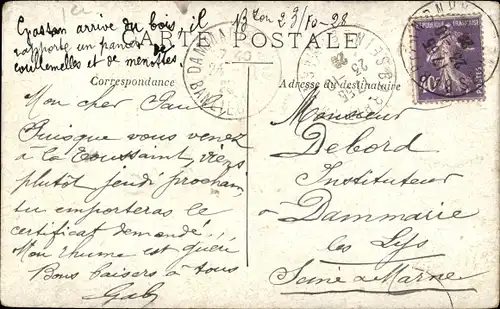 Gaston arrive du bois, il
rapporte un panier de
coulemelles et de menottes.
Bron 23/10-28
CARTE POSTALE
Correspondance
Adresse du destinataire
Mon cher Paul
Puisque vous venez
à la Toussaint, viens
plutôt jeudi prochain,
tu emporteras le
certificat demandé.
Mon rhume est guéri
Bons baisers à tous
Gaby
Monsieur
Debord
Instituteur
à Dammarie
les Lys
Seine & Marne